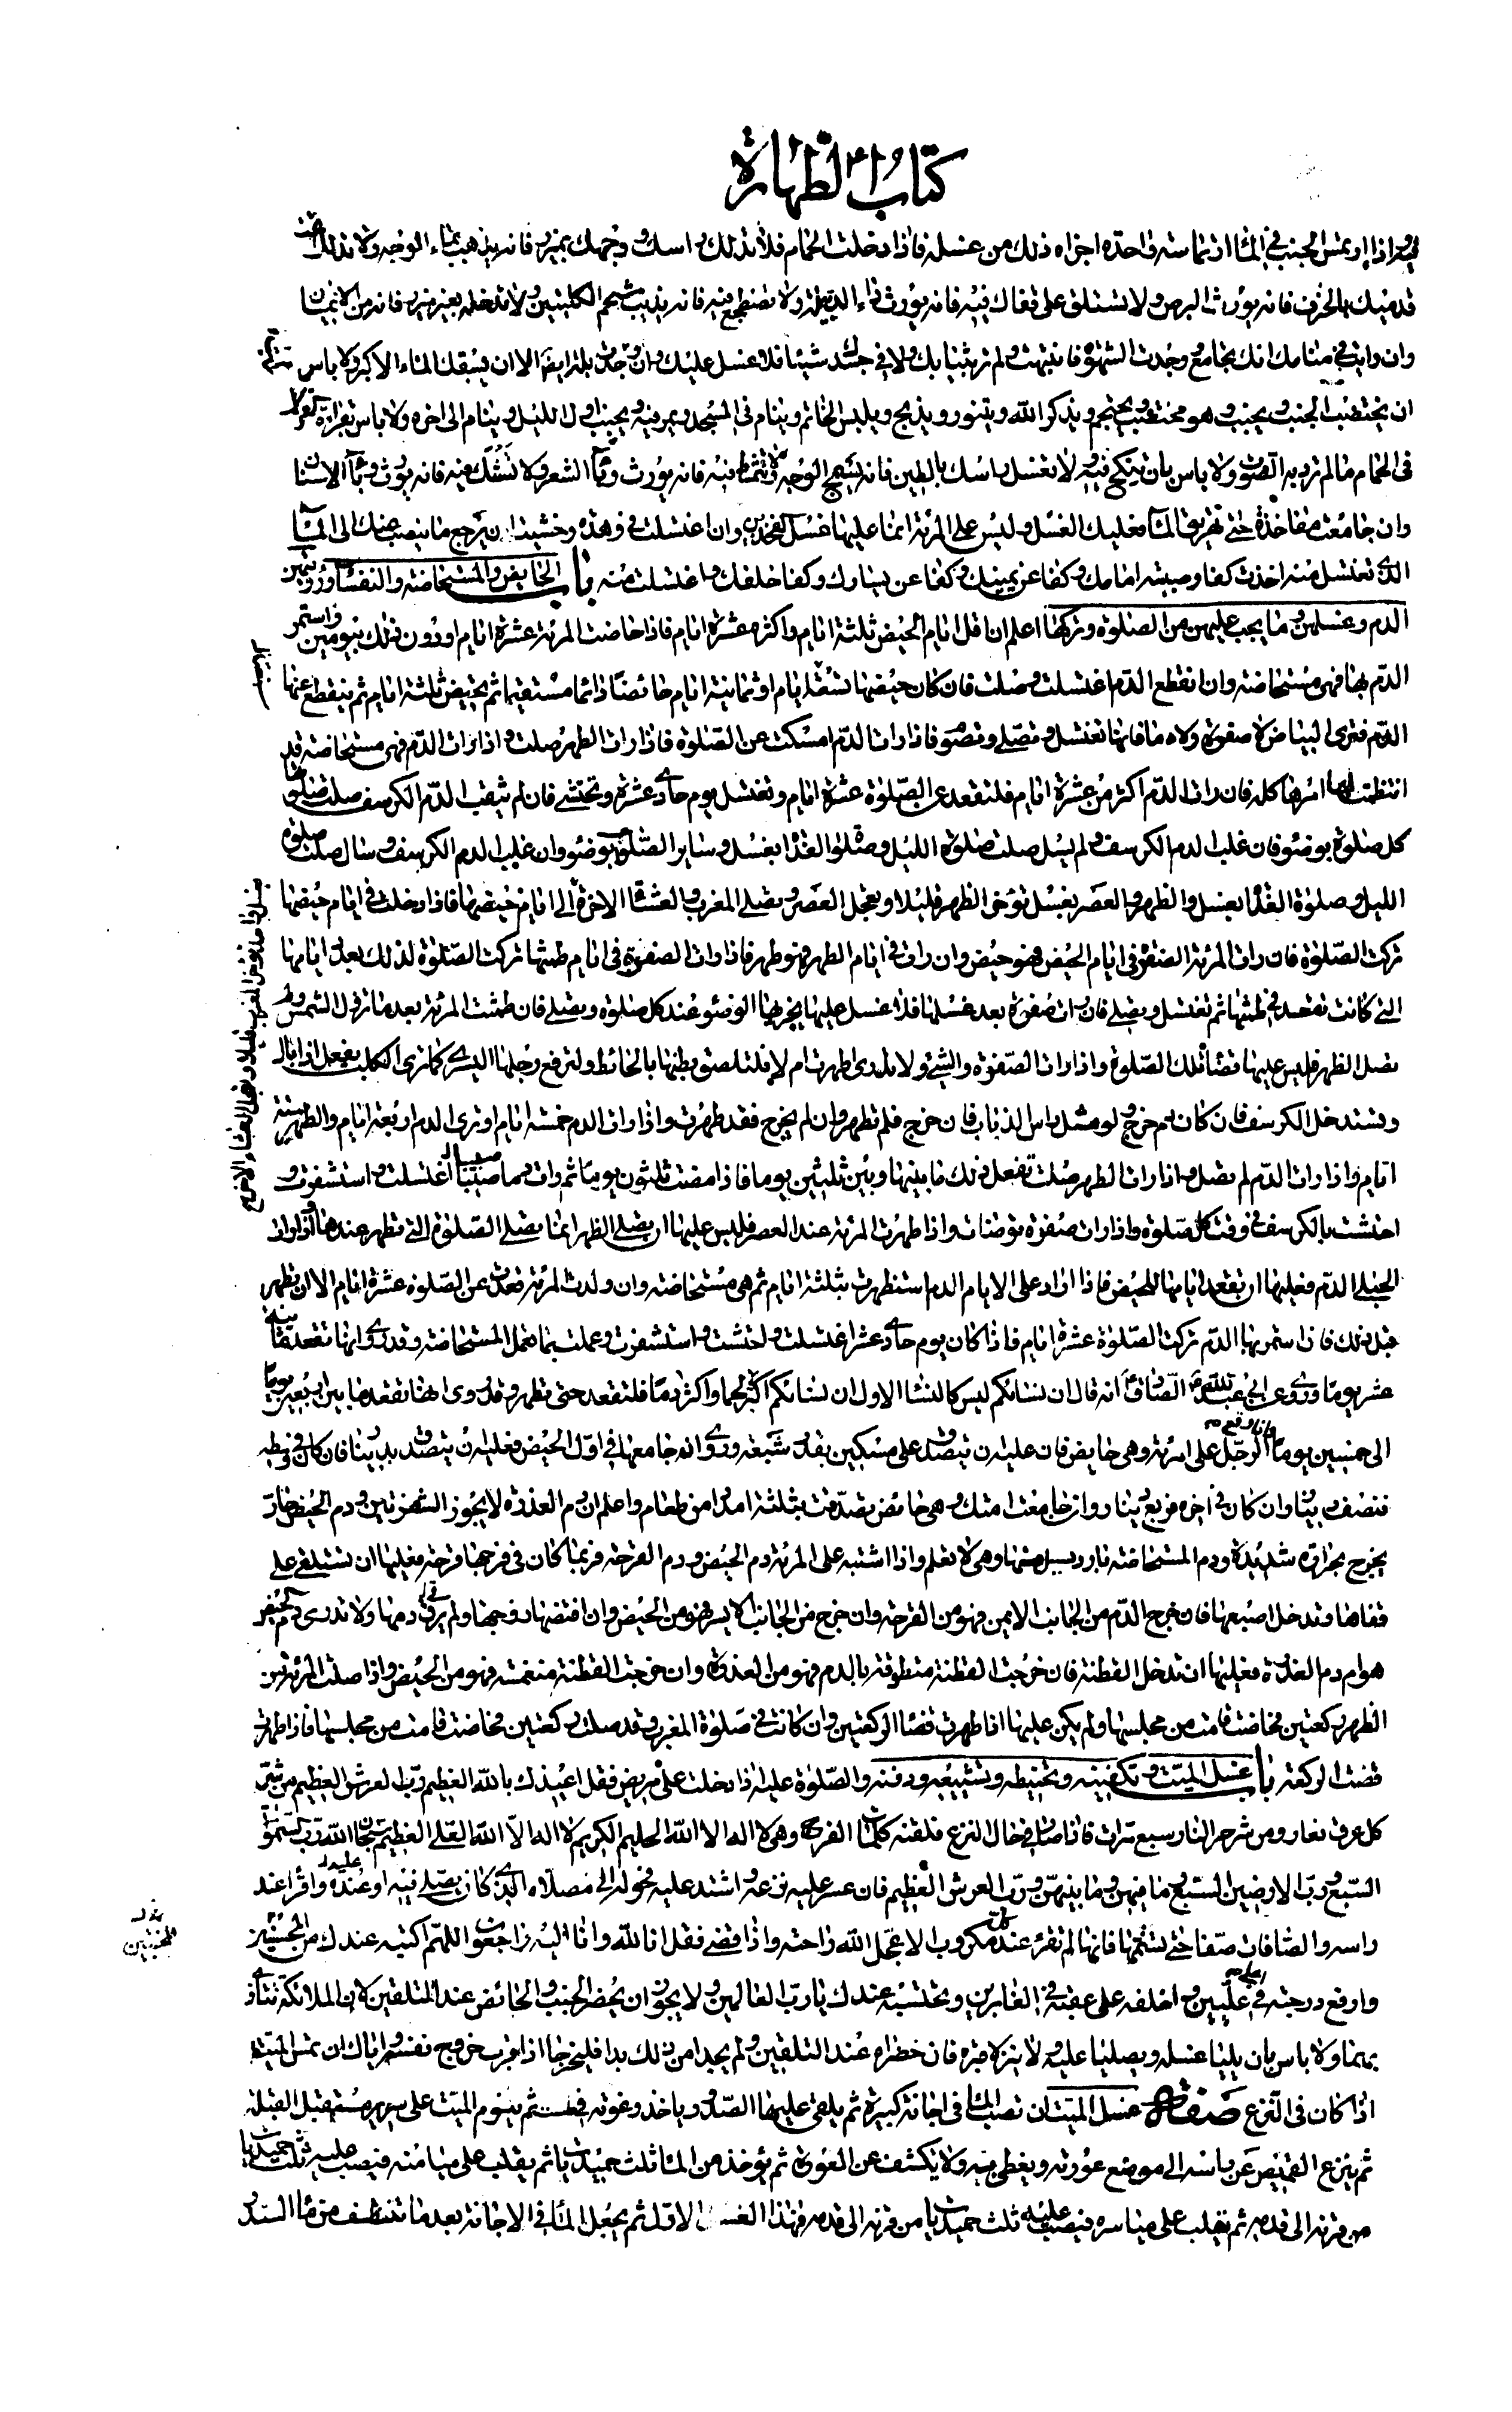 كتاب الطهارة
اذا ارتمس الجنب في الماء ارتماسة واحدة اجزاه ذلك من غسله فاذا دخلت الحمام فلا تدلك راسك ووجهك بميزر فانه يذهب بماء الوجه ولا تدلك تحت
قدميك بالخزف فانه يورث البرص ولا تستلق على قفاك فيه فانه يورث داء الدبيلة ولا تضطجع فيه فانه يذيب شحم الكليتين ولا تدخله بغير ميزر فانه من الايمان
وان رايت في منامك انك تجامع ووجدت الشهوة فانتبهت ولم تر بثيابك ولا في جسدك شيئا فلا غسل عليك وان وجدت بلة ايضا الا ان يسبقك الماء الاكبر ولا باس
ان يختضب الجنب ويجنب وهو مختضب ويحتجم ويذكر الله ويتنور ويذبح ويلبس الخاتم وينام في المسجد ويمر فيه ويجنب اول الليل وينام الى اخره ولا باس بقراءة القران
في الحمام ما لم ترد به الصوت ولا باس بان تنكح فيه ولا تغسل راسك بالطين فانه يسمج الوجه ولا تتمشط فيه فانه يورث وباء الشعر ولا تستك فيه فانه يورث وباء الاسنان
وان جامعت مفاخذة حتى تهريق الماء فعليك الغسل وليس على المرئة انما عليها غسل الفخذين وان اغتسلت في وهدة وخشيت ان يرجع ما ينصب عنك الى الماء
الذي تغتسل منه اخذت كفا وصببته امامك وكفا عن يمينك وكفا عن يسارك وكفا خلفك واغتسلت منه باب الحايض والمستحاضة والنفساء ورؤيتهن
الدم وغسلهن وما يجب عليهن من الصلوة وتركها اعلم ان اقل ايام الحيض ثلثة ايام واكثره عشرة ايام فاذا حاضت المرئة عشرة ايام او دون ذلك بيومين واستمر
الدم بها فهي مستحاضة وان انقطع الدم اغتسلت وصلت فان كان حيضها تسعة ايام او ثمانية ايام حائضا دائما مستقيما ثم تحيض ثلثة ايام ثم ينقطع عنها
الدم فترى البياض لا صفرة ولا دما فانها تغتسل وتصلي وتصوم فاذا رات الدم امسكت عن الصلوة فاذا رات الطهر صلت واذا رات الدم فهي مستحاضة قد
انتظمت لها امرها كله فان رات الدم اكثر من عشرة ايام فلتقعد عن الصلوة عشرة ايام وتغتسل يوم حادي عشرة وتحتشي فان لم يثقب الدم الكرسف صلت صلوتها
كل صلوة بوضوء فان غلب الدم الكرسف ولم يسل صلت صلوة الليل وصلوة الغداة بغسل وساير الصلوة بوضوء وان غلب الدم الكرسف وسال صلت صلوة
الليل وصلوة الغداة بغسل والظهر والعصر بغسل تؤخر الظهر قليلا وتعجل العصر وتصلي المغرب والعشاء الاخرة الى ايام حيضها فاذا دخلت في ايام حيضها
تركت الصلوة فان رات المرئة الصفرة في ايام الحيض فهو حيض وان رات في ايام الطهر فهو طهر فاذا رات الصفرة في ايام طمثها تركت الصلوة لذلك بعدد ايامها
التي كانت تقعد في طمثها ثم تغتسل وتصلي فان رات صفرة بعد غسلها فلا غسل عليها يجزيها الوضوء عند كل صلوة وتصلي فان طمثت المرئة بعد ما تزول الشمس ولم
تصل الظهر فليس عليها قضاء تلك الصلوة واذا رات الصفرة والشيء ولا تدري اطهرت ام لا فلتلصق بطنها بالحائط ولترفع رجلها اليسرى كما ترى الكلب يفعل اذا بال
وتستدخل الكرسف فان كان دم خرج ولو مثل راس الذباب فان خرج فلم تطهر وان لم يخرج فقد طهرت واذا رات الدم خمسة ايام او ترى الدم اربعة ايام والطهر ستة
ايام واذا رات الدم لم تصل واذا رات الطهر صلت تفعل ذلك ما بينها وبين ثلثين يوما فاذا مضت ثلثون يوما ثم رات دما صبيبا اغتسلت واستثفرت و
احتشت بالكرسف في وقت كل صلوة واذا رات صفرة توضات واذا طهرت المرئة عند العصر فليس عليها ان تصلي الظهر انما تصلي الصلوة التي تطهر عندها واذا رات
الحبلى الدم فعليها ان تقعد ايامها للحيض فاذا زاد على الايام الدم استظهرت بثلثة ايام ثم هي مستحاضة وان ولدت المرئة قعدت عن الصلوة عشرة ايام الا ان تطهر
قبل ذلك فان استمر بها الدم تركت الصلوة عشرة ايام فاذا كان يوم حادي عشر اغتسلت واحتشت واستثفرت وعملت بما تعمل المستحاضة وقد روي انها تقعد ثمانية
عشر يوما وروي عن ابي عبد الله الصادق انه قال ان نسائكم ليس كالنساء الاول ان نسائكم اكثر لحما واكثر دما فلتقعد حتى تطهر وقد روي انها تقعد ما بين اربعين يوما
الى خمسين يوما وان وقع الرجل على امرئة وهي حايض فان عليه ان يتصدق على مسكين بقدر شبعه وروي انه جامعها في اول الحيض فعليه ان يتصدق بدينار فان كان في وسطه
فنصف دينار وان كان في اخره فربع دينار وان جامعت امتك وهي حائض تصدقت بثلثة امداد من طعام واعلم ان دم العذرة لا يجوز الشفرتين ودم الحيض حار
يخرج بحرارة شديدة ودم المستحاضة بارد يسيل منها وهي لا تعلم واذا اشتبه على المرئة دم الحيض ودم القرحة فربما كان في فرجها قرحة فعليها ان تستلقي على
قفاها وتدخل اصبعها فان خرج الدم من الجانب الايمن فهو من القرحة وان خرج من الجانب الايسر فهو من الحيض وان افتضها زوجها ولم يرق دمها ولا تدري دم الحيض
هو ام دم العذرة فعليها ان تدخل القطنة فان خرجت القطنة متطوقة بالدم فهو من العذرة وان خرجت القطنة منغمسة فهو من الحيض واذا صلت المرئة من
الظهر ركعتين فحاضت قامت من مجلسها ولم يكن عليها اذا طهرت قضاء الركعتين وان كانت في صلوة المغرب وقد صلت ركعتين فحاضت قامت من مجلسها فاذا طهرت
قضت الركعة باب غسل الميت وتكفينه وتحنيطه وتشييعه ودفنه والصلوة عليه اذا دخلت على مريض فقل اعيذك بالله العظيم رب العرش العظيم من شر
كل عرق نعار ومن شر حر النار سبع مرات فاذا صار في حال النزع فلقنه كلمات الفرج وهي لا اله الا الله الحليم الكريم لا اله الا الله العلي العظيم سبحان الله رب السموات
السبع ورب الارضين السبع وما فيهن وما بينهن ورب العرش العظيم فان عسر عليه نزعه واشتد عليه فحوله الى مصلاه الذي كان يصلي فيه او عنده عليه واقرا عند
راسه والصافات صفا حتى تستتمها فانها لم تقرء عند مكروب الا عجل الله راحته واذا قضي فقل انا لله وانا اليه راجعون اللهم اكتبه عندك من المحسنين
وارفع درجته في اعلى عليين واخلفه على عقبه في الغابرين ونحتسبه عندك يا رب العالمين ولا يجوز ان يحضر الجنب والحائض عند التلقين لان الملائكة تتاذى
بهما ولا باس بان يليا غسله ويصليا عليه ولا ينزلا قبره فان حضراه عند التلقين ولم يجدا من ذلك بدا فليخرجا اذا قرب خروج نفسه واياك ان تمس الميت
اذا كان في النزع صفة غسل الميت ان تصب الماء في اجانة كبيرة ثم يلقى عليها السدر وياخذ رغوته في طست ثم ينوم الميت على سرير مستقبل القبلة
ثم ينزع القميص عن راسه الى موضع عورته ويغطى به ولا يكشف عن العورة ثم يؤخذ من الماء ثلث حميديات ثم يقلب على مياسره فيصب عليه ثلث حميديات
من قرنه الى قدمه ثم يقلب على مياسره فيصب عليه ثلث حميديات من قرنه الى قدمه فهذا الغسل الاول ثم يجعل الماء في الاجانة بعد ما تنظف من ماء السدر